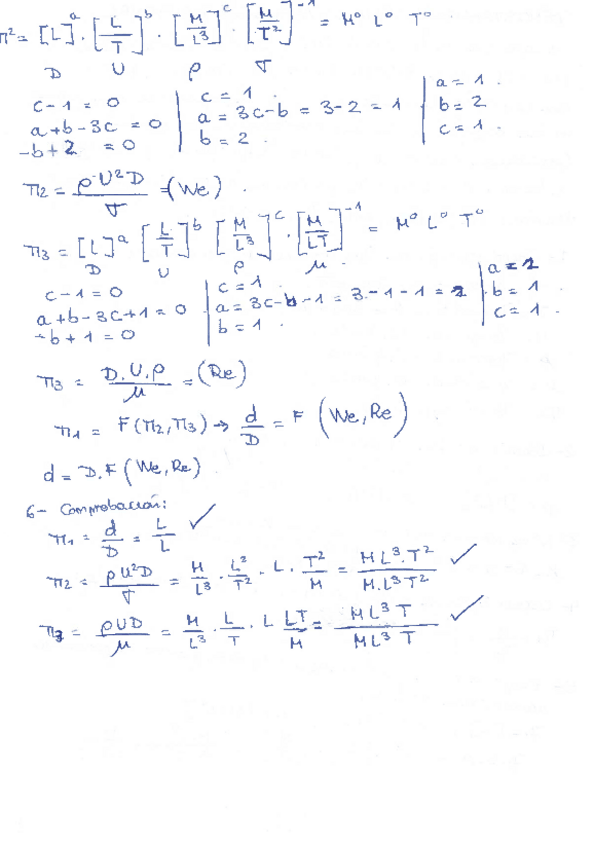 π2 = [L]^a · [L/T]^b · [M/L³]^c · [M/T²]^-1 = M⁰ L⁰ T⁰
D U ρ σ
c - 1 = 0 | c = 1 . | a = 1 .
a + b - 3c = 0 | a = 3c - b = 3 - 2 = 1 | b = 2
-b + 2 = 0 | b = 2 . | c = 1 .
π2 = ρ·U²D/σ = (We) .
π3 = [L]^a [L/T]^b [M/L³]^c · [M/LT]^-1 = M⁰ L⁰ T⁰
D U ρ μ .
c - 1 = 0 | c = 1 . | a = 1
a + b - 3c + 1 = 0 | a = 3c - b - 1 = 3 - 1 - 1 = 1 | b = 1
-b + 1 = 0 | b = 1 . | c = 1 .
π3 = D.U.ρ/μ = (Re)
π1 = F(π2, π3) → d/D = F (We, Re)
d = D.F (We, Re) .
6- Comprobación:
π1 = d/D = L/L ✓
π2 = ρU²D/σ = M/L³ · L²/T² · L · T²/M = ML³.T²/M.L³T² ✓
π3 = ρUD/μ = M/L³ · L/T · L LT/M = ML³T/ML³T ✓